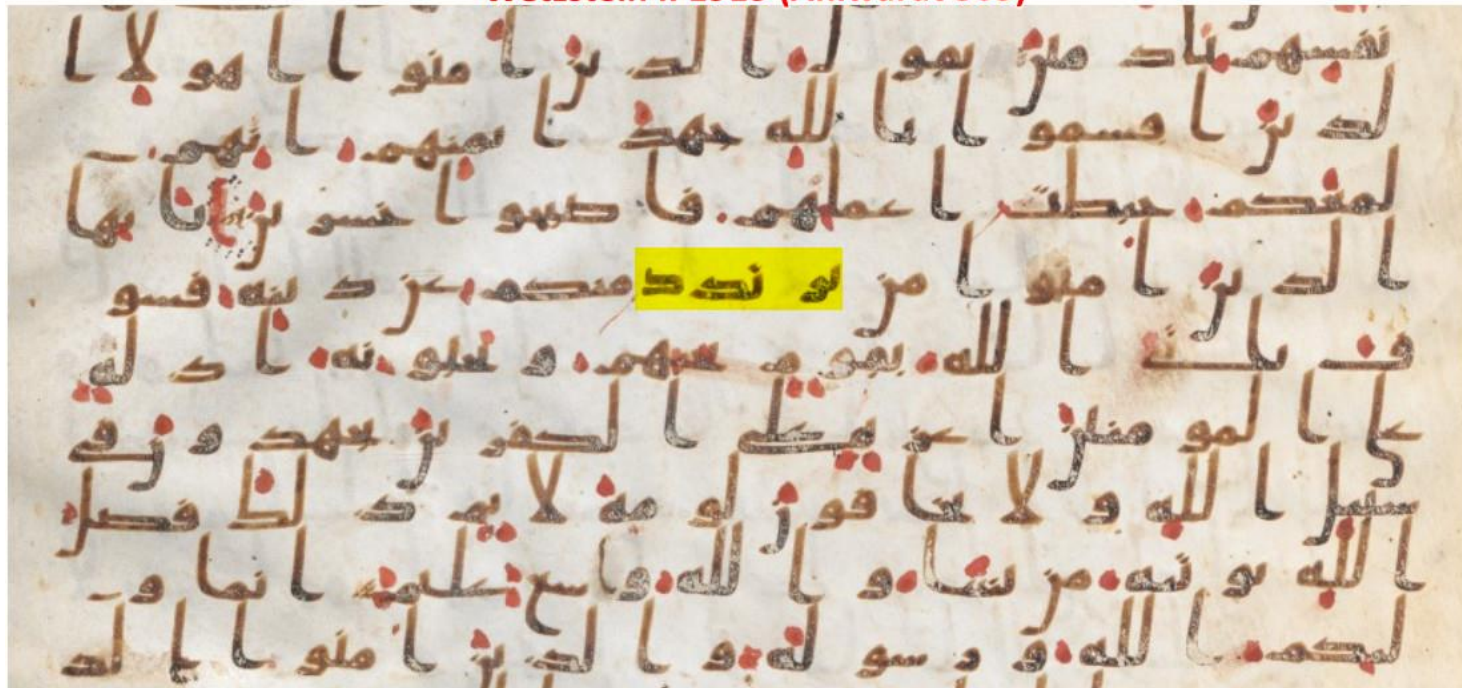 Wetzstein II 1913 (Ahlwardt 305)
نفسهم ندمين يقول الذين امنوا اهولا ا
لذين اقسموا بالله جهد ايمنهم انهم
لمعكم حبطت اعملهم فاصبحوا خسرين يايها
الذين امنوا من يرتدد منكم عن دينه فسو
ف ياتي الله بقوم يحبهم ويحبونه اذلة
على المومنين اعزة على الكفرين يجهدون في
سبيل الله ولا يخافون لومة لايم ذلك فضل
الله يوتيه من يشا والله وسع عليم انما و
ليكم الله ورسوله والذين امنوا الذ